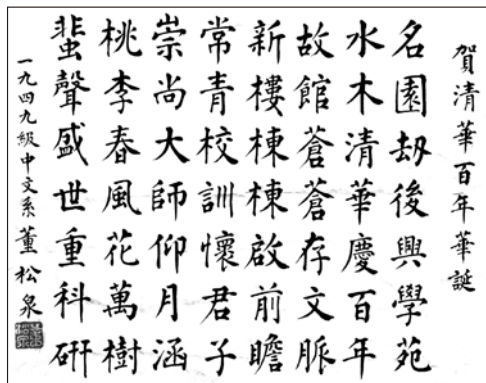 賀清華百年華誕
名園劫後興學苑
水木清華慶百年
故館蒼蒼存文脈
新樓棟棟啟前瞻
常青校訓懷君子
崇尚大師仰月涵
桃李春風花萬樹
蜚聲盛世重科研
一九四九級中文系董松泉